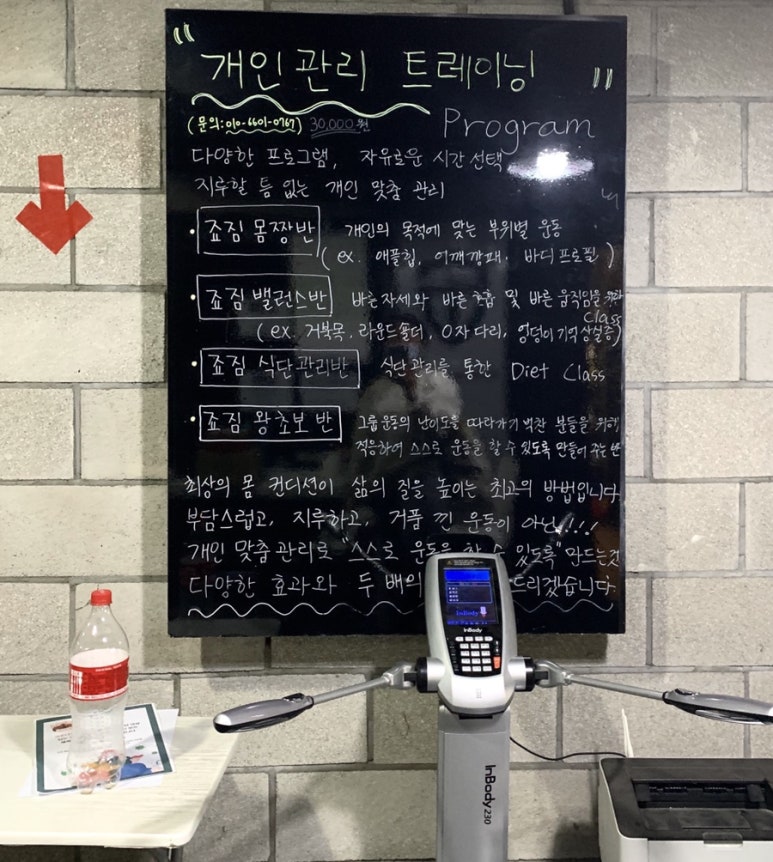 "개인관리 트레이닝"
(문의:010-6601-0767) 30,000원 Program
다양한 프로그램, 자유로운 시간선택
지루할 틈 없는 개인 맞춤 관리
• 죠짐 몸짱반 개인의 목적에 맞는 부위별 운동
(ex. 애플힙, 어깨깡패, 바디프로필)
• 죠짐 밸런스반 바른자세와 바른호흡 및 바른 움직임을 위한
Class
(ex. 거북목, 라운드숄더, O자다리, 엉덩이기억상실증)
• 죠짐 식단관리반 식단관리를 통한 Diet Class
• 죠짐 왕초보반 그룹운동의 난이도를 따라가기 벅찬 분들을 위해
적응하여 스스로 운동을 할 수 있도록 만들어 주는 반
최상의 몸 컨디션이 삶의 질을 높이는 최고의 방법입니다
부담스럽고, 지루하고, 거품 낀 운동이 아닌!!!
개인 맞춤관리로 "스스로 운동을 할 수 있도록" 만드는것
다양한 효과와 두 배의 드리겠습니다.
InBody
InBody
InBody230